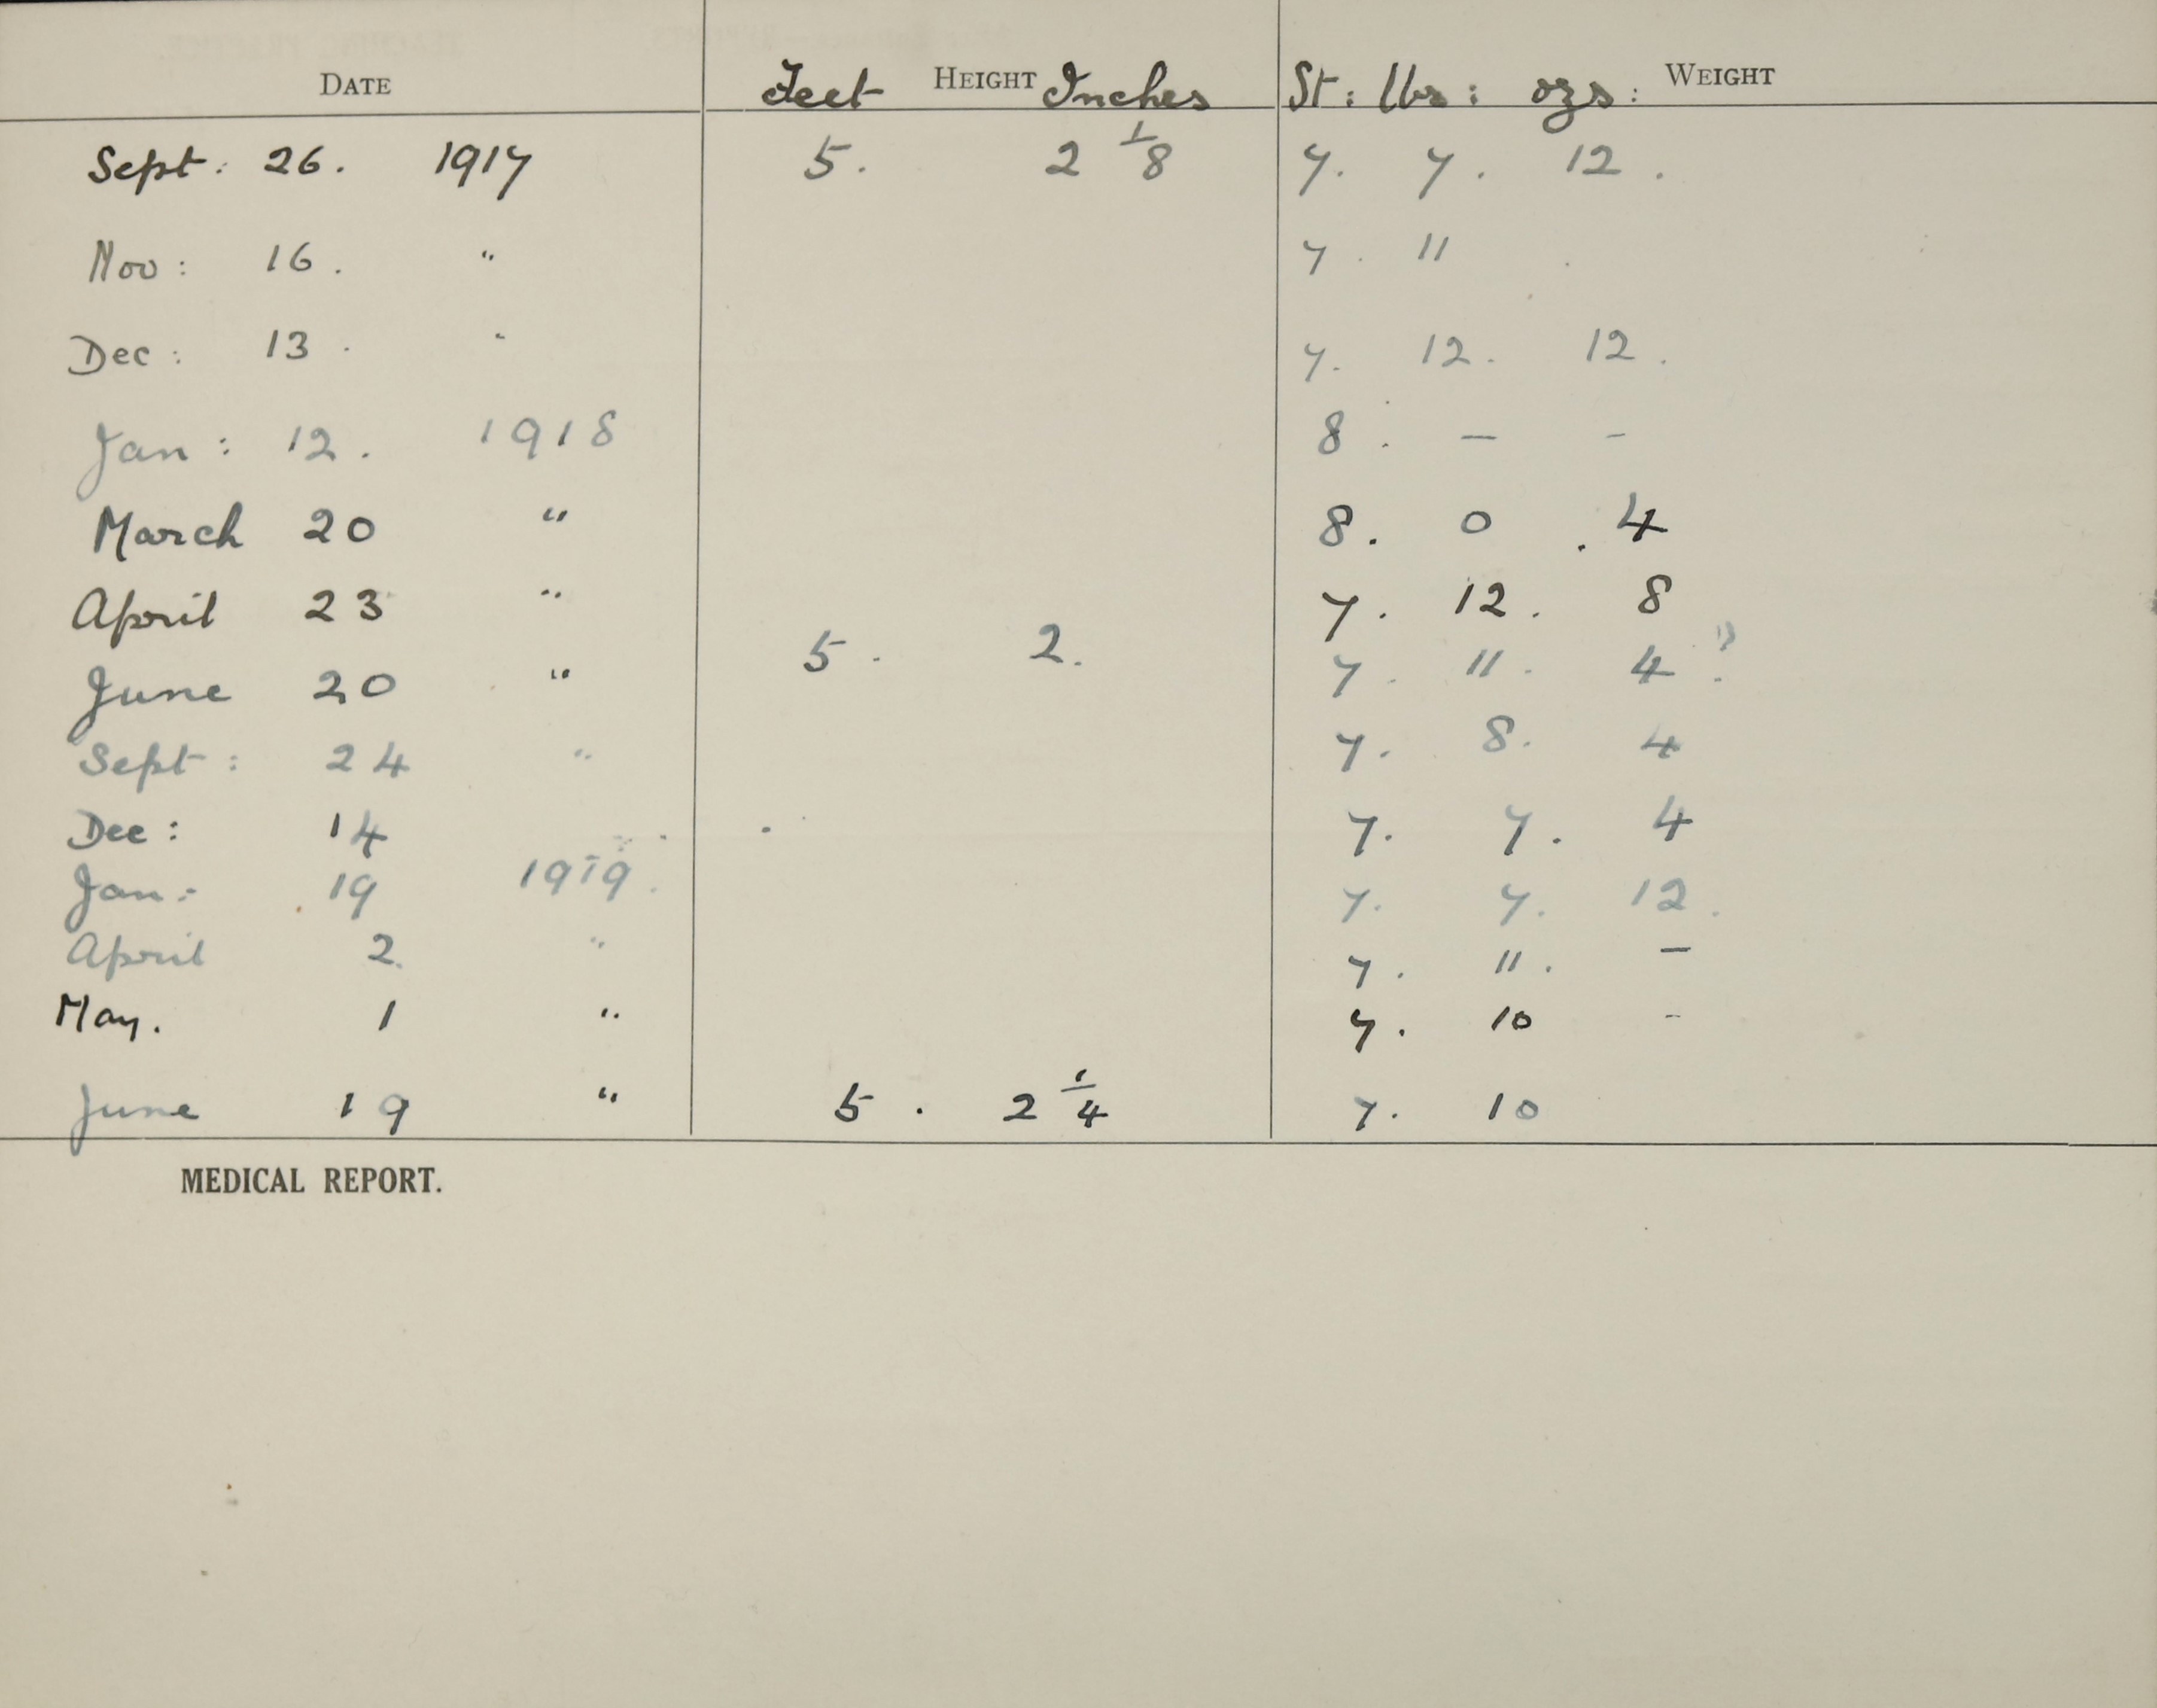 DATE Feet HEIGHT Inches St: lbs: ozs: WEIGHT
Sept: 26. 1917 5. 2 1/8 7. 7. 12.
Nov: 16. " 7. 11
Dec: 13. " 7. 12. 12.
Jan: 12. 1918 8. — -
March 20 " 8. 0 . 4
April 23 " 7. 12. 8
June 20 " 5. 2. 7. 11. 4 ?
Sept: 24 " 7. 8. 4
Dec: 14 7. 7. 4
Jan: 19 1919. 7. 7. 12.
April 2. " 7. 11. —
May. 1 " 7. 10 -
June 19 " 5. 2 1/4 7. 10
MEDICAL REPORT.